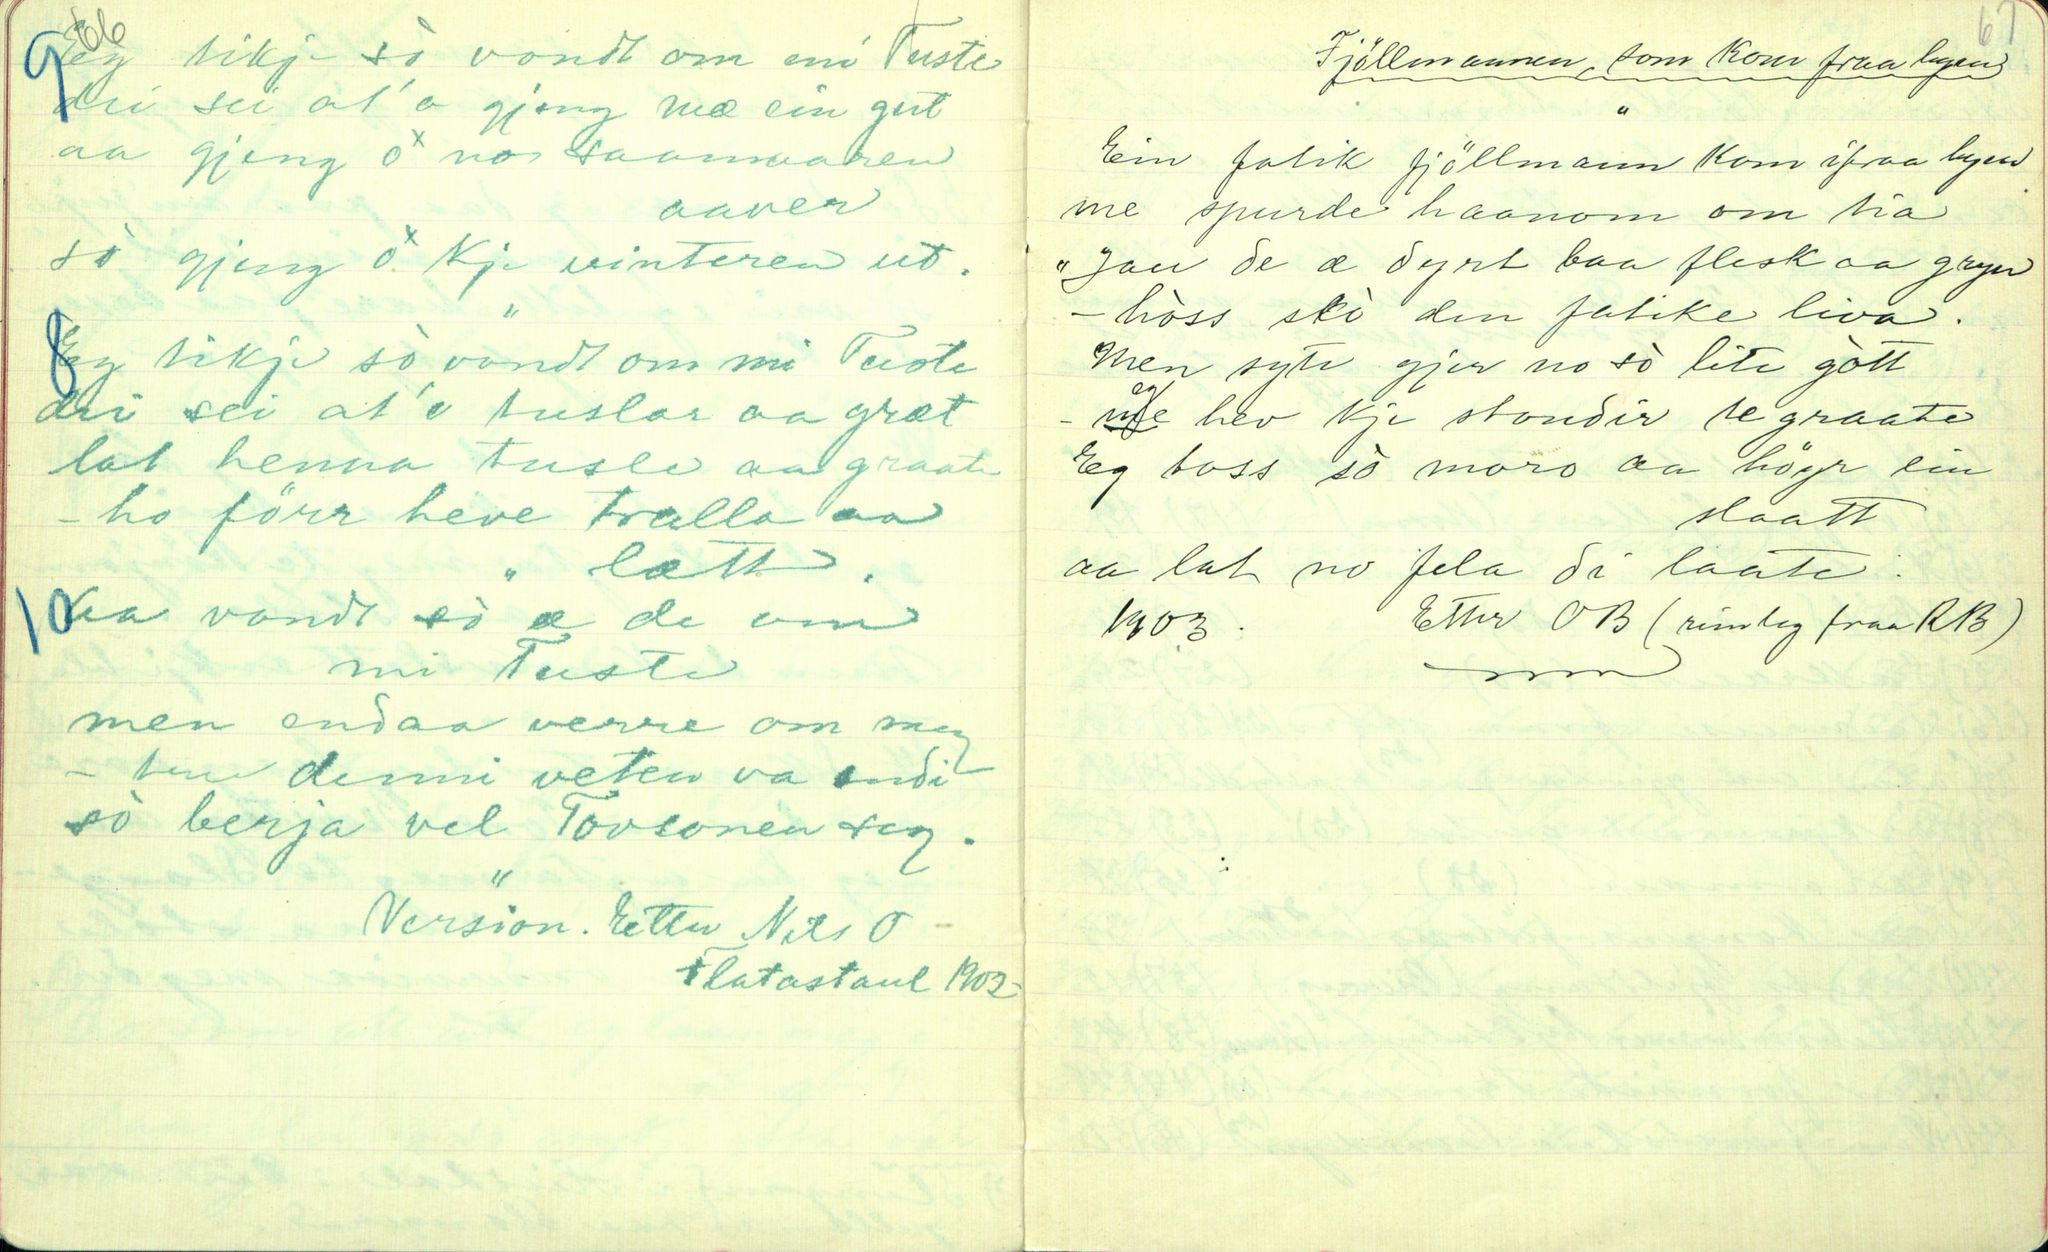 66
9 Eg tikje sò vondt om mi Tuste
dei sei at'o gjeng mæ ein gut
aa gjeng ò no saamaaren
aaver
sò gjeng ò kje vinteren ut.
"
8 Eg tikje sò vondt om mi Tuste
dei sei at'o tuslar aa græt
lat henna tusle aa graate
- ho förr heve tralla aa
" lætt.
10 Kaa vondt sò æ de om
mi Tuste
men endaa verre om meg
- denni veten va endi
sò berja vel Tovsonen seg.
"
Version. Etter Nils O
Flatastaul 1903
67
Fjöllmannen, som kom fraa byen
"
Ein fatik fjöllmann kom ifraa byen
me spurde haanom om tia
"Jau de æ dyrt baa flesk aa gryn
- hòss skò den fatike liva.
Men syte gjer no sò lite gòtt
- eg hev kje stondir te graate
Eg toss sò moro aa höyr ein
slaatt
aa lat no fela di laate.
1903. Etter OB (rimleg fraa RB)